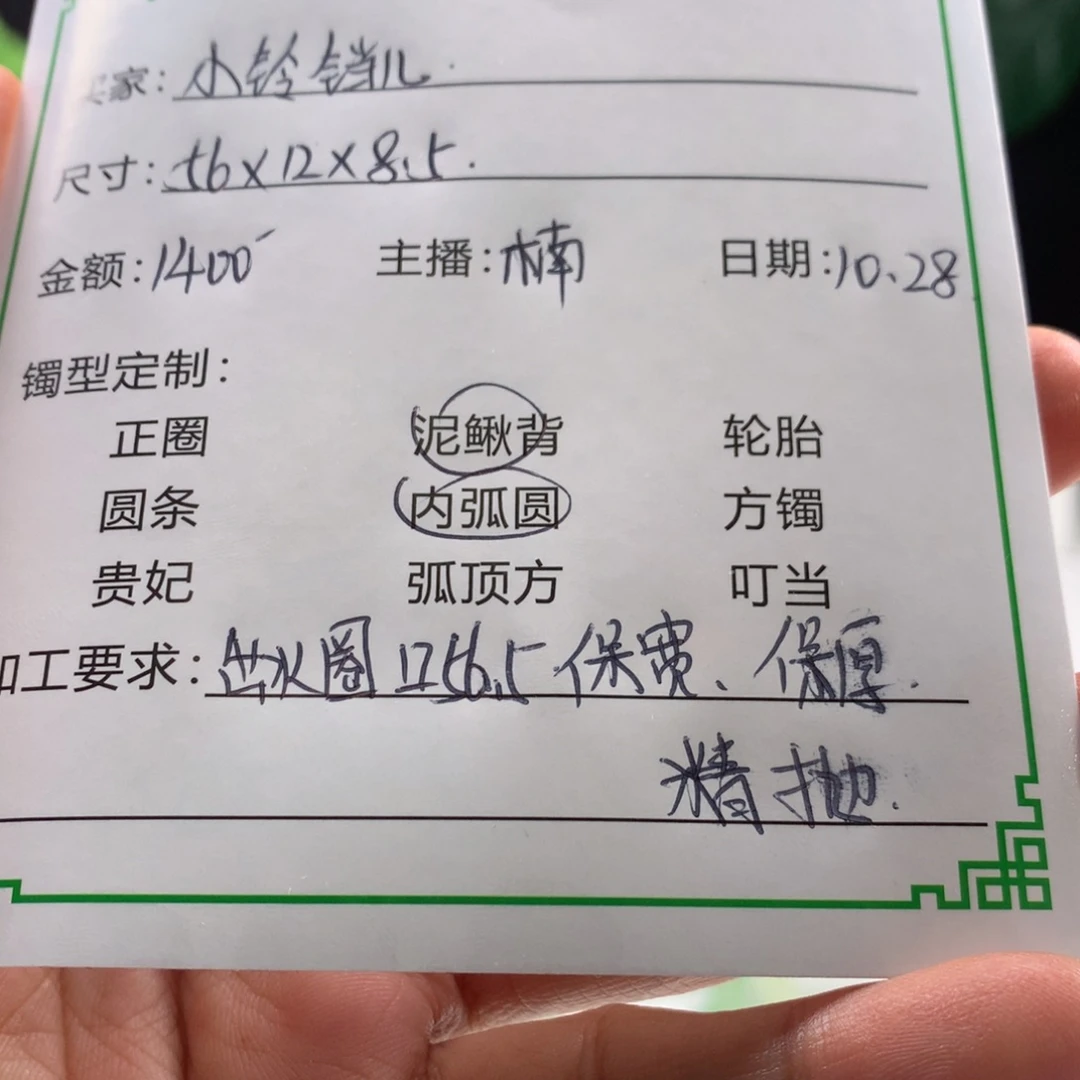 买家：小铃铛儿.
尺寸：56×12×8.5.
金额：1400 主播：楠 日期：10.28
镯型定制：
正圈 泥鳅背 轮胎
圆条 内弧圆 方镯
贵妃 弧顶方 叮当
加工要求：出火圈口56.5保宽、保厚.
精抛.